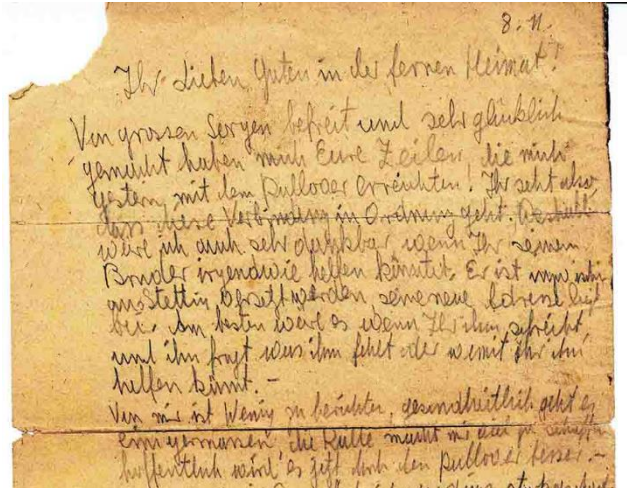 8. 11.
Ihr Lieben, Guten in der fernen Heimat!
Von grossen Sorgen befreit und sehr glücklich
gemacht haben mich Eure Zeilen, die mich
gestern mit dem Pullover erreichten! Ihr seht also,
dass diese Verbindung in Ordnung geht. Deshalb
wäre ich auch sehr dankbar wenn Ihr seinem
Bruder irgendwie helfen könntet. Er ist
Stettin versetzt worden seine neue Adresse liegt
bei. Am besten wäre es wenn Ihr ihm schreibt
und ihn fragt was ihm fehlt oder womit Ihr ihm
helfen könnt. –
Von mir ist wenig zu berichten, gesundheitlich geht es
einigermassen, die Kälte macht mir zu
hoffentlich wird es jetzt durch den Pullover besser. –